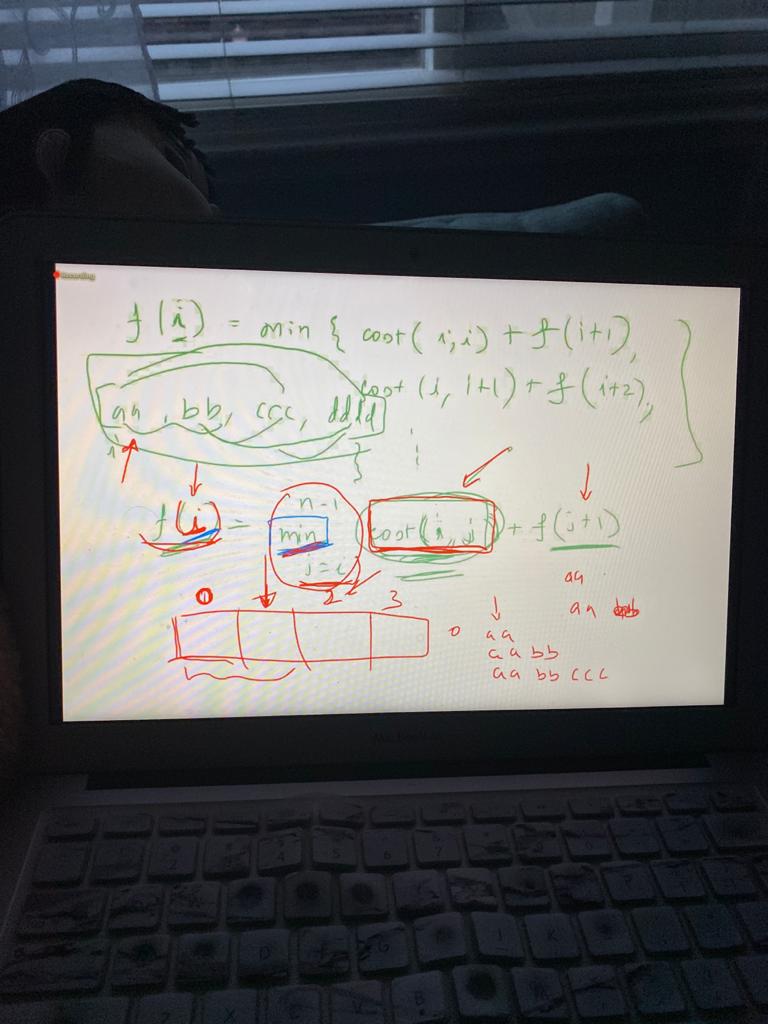 Recording
f(i) = min { cost(i,i) + f(i+1),
cost (i, i+1) + f(i+2),
aa, bb, ccc, dddd
i
}
n-1
f(i) = min cost(i, j) + f(j+1)
j=i
aa
aa bb
0 2 3
0 aa
aa bb
aa bb ccc